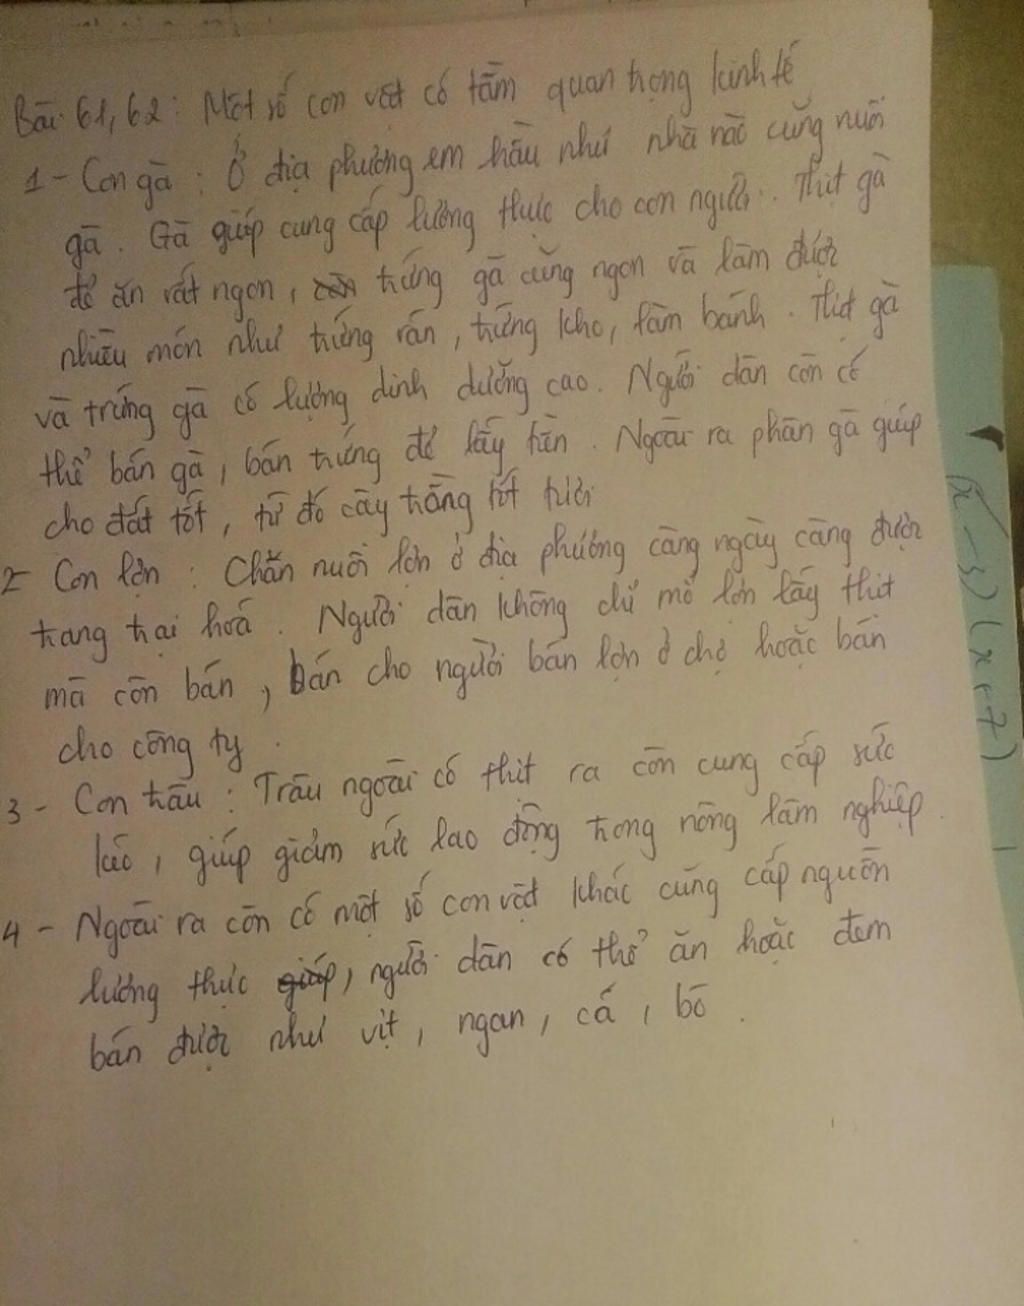 Bài 61, 62: Một số con vật có tầm quan trọng kinh tế
1 - Con gà: Ở địa phương em hầu như nhà nào cũng nuôi
gà. Gà giúp cung cấp lương thực cho con người. Thịt gà
để ăn rất ngon, trứng gà cũng ngon và làm được
nhiều món như trứng rán, trứng kho, làm bánh. Thịt gà
và trứng gà có lượng dinh dưỡng cao. Người dân còn có
thể bán gà, bán trứng để lấy tiền. Ngoài ra phân gà giúp
cho đất tốt, từ đó cây trồng tốt tươi
2 - Con lợn: Chăn nuôi lợn ở địa phương càng ngày càng được
trang trại hoá. Người dân không chỉ mổ lợn lấy thịt
mà còn bán, bán cho người bán lợn ở chợ hoặc bán
cho công ty.
3 - Con trâu: Trâu ngoài có thịt ra còn cung cấp sức
kéo, giúp giảm sức lao động trong nông lâm nghiệp.
4 - Ngoài ra còn có một số con vật khác cũng cấp nguồn
lương thực giúp, người dân có thể ăn hoặc đem
bán được như vịt, ngan, cá, bò.
(x - 3)(x + 7)